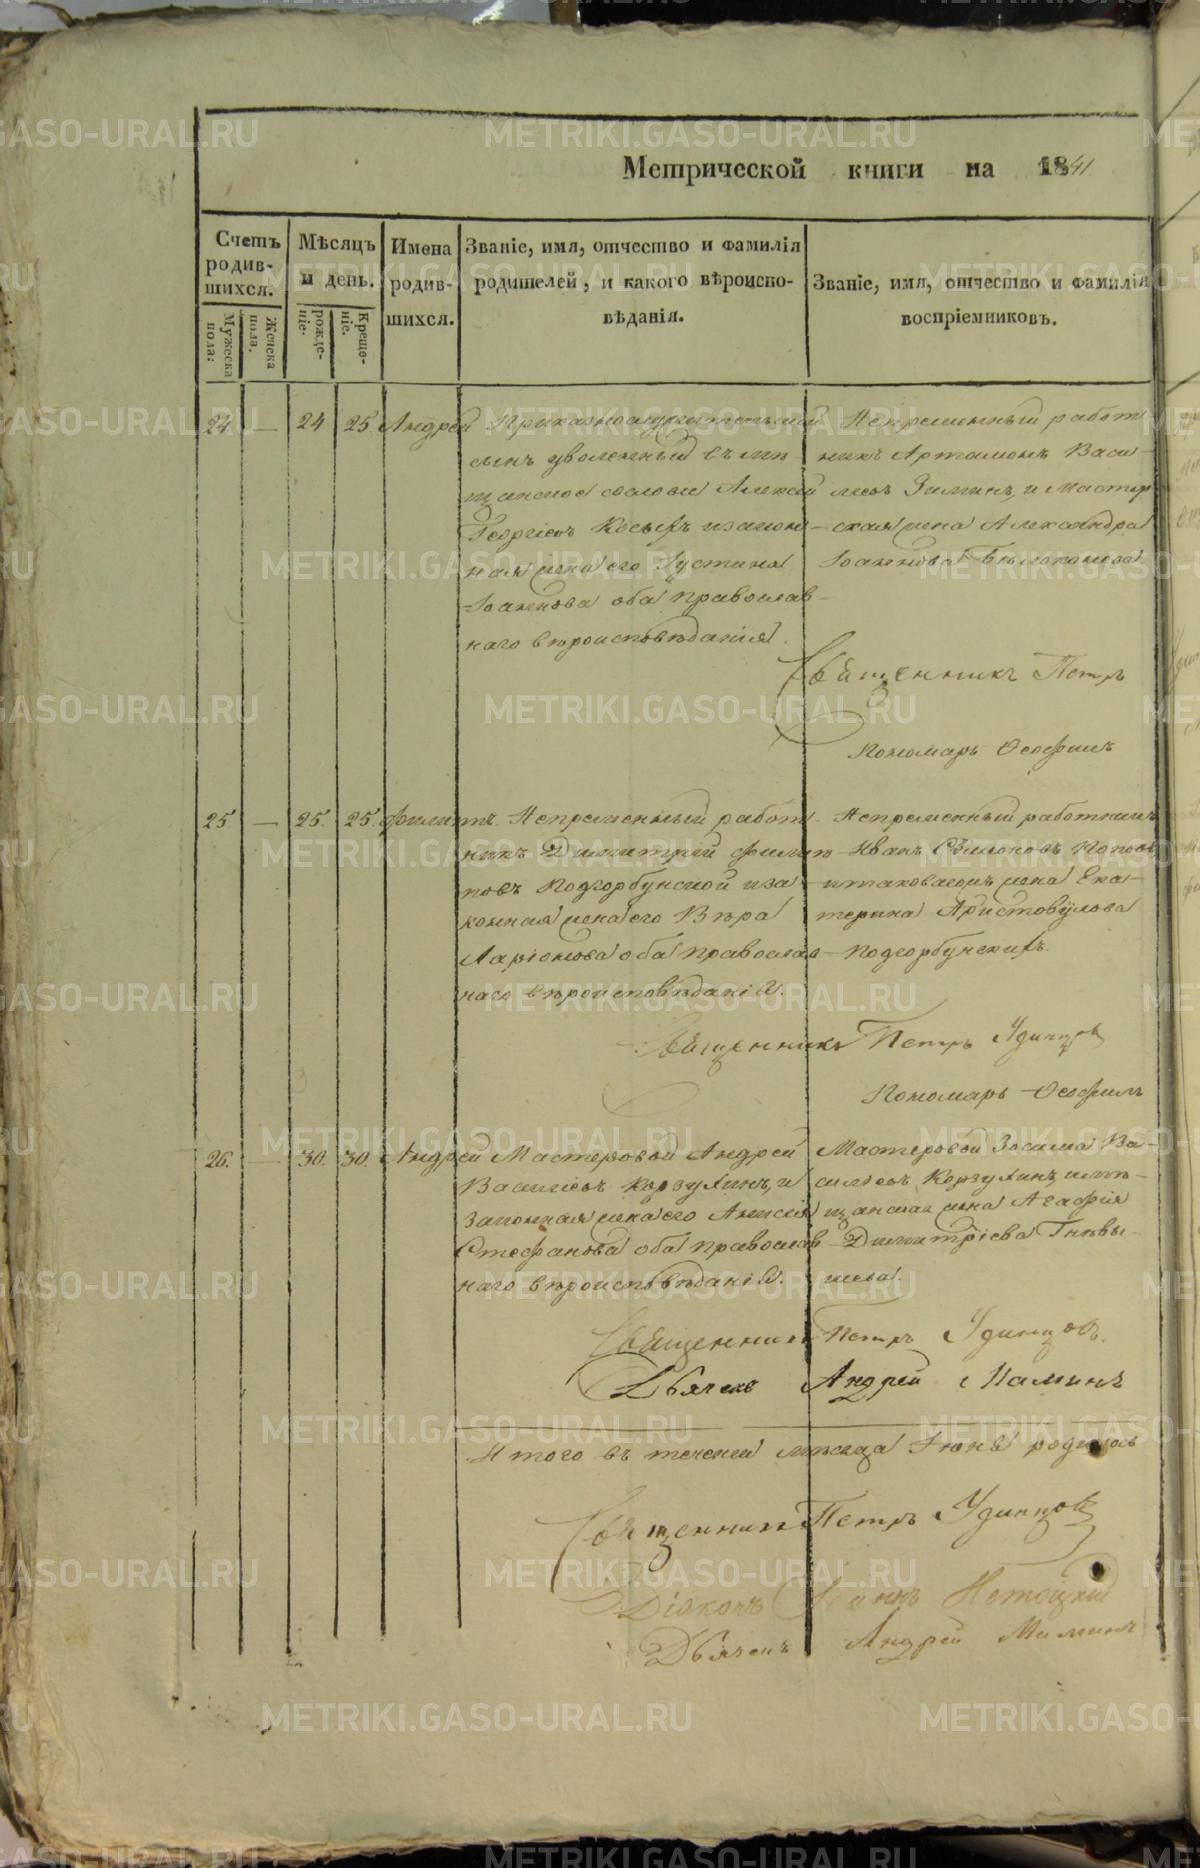 Метрической книги на 1841
Счетъ родив-шихся.
Мужеска пола:
Женска пола.
Мѣсяцъ и день.
рожде-ніе.
Креще-ніе.
Имена родив-шихся.
Званіе, имя, отчество и фамилія
родителей, и какого вѣроиспо-
вѣданія.
Званіе, имя, отчество и фамилія
воспріемниковъ.
24 — 24 25 Андрей
сынъ уволенный въ мѣ-
щанское сословіе Алексѣй
Георгіевъ Косыхъ и закон-
ная жена его Іустина
Іоаннова оба православ-
наго вѣроисповѣданія.
Непремѣнный работ-
никъ Артамонъ Васи-
льевъ Зиминъ, и мастер-
ская жена Александра
Іоаннова
Священникъ Петръ
Пономарь Ѳеофилъ
25 — 25. 25. Филиппъ.
Непремѣнный работ-
никъ Димитрій Филип-
повъ Подгорбунской и за-
конная жена его Вѣра
Ларіонова оба православ-
наго вѣроисповѣданія.
Непремѣнный работникъ
Иванъ Семеновъ Поповъ
и таковаго жена Ека-
терина Аристовулова
Подгорбунскихъ.
Священникъ Петръ Удинцовъ
Пономарь Ѳеофилъ
26. — 30. 30. Андрей
Мастеровой Андрей
Васильевъ Корзухинъ, и
Законная жена его Анисія
Стефанова оба православ-
наго вѣроисповѣданія.
Мастеровой Зосима Ва-
сильевъ Корзухинъ, и мѣ-
щанская жена Агафія
Димитріева Гнѣвы-
шева.
Священникъ Петръ Удинцовъ.
Дьячекъ Андрей Маминъ
Итого въ теченіи мѣсяца Іюня родилось
Священникъ Петръ Удинцовъ
Діаконъ Іоаннъ
Дьячекъ Андрей Маминъ
METRIKI.GASO-URAL.RU